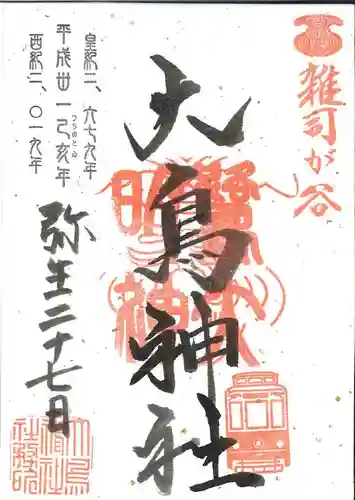 雑司が谷
大鳥神社
皇紀二、六七九年
平成丗一己亥年
つちのとゐ
西紀二、〇一九年
弥生二十七日